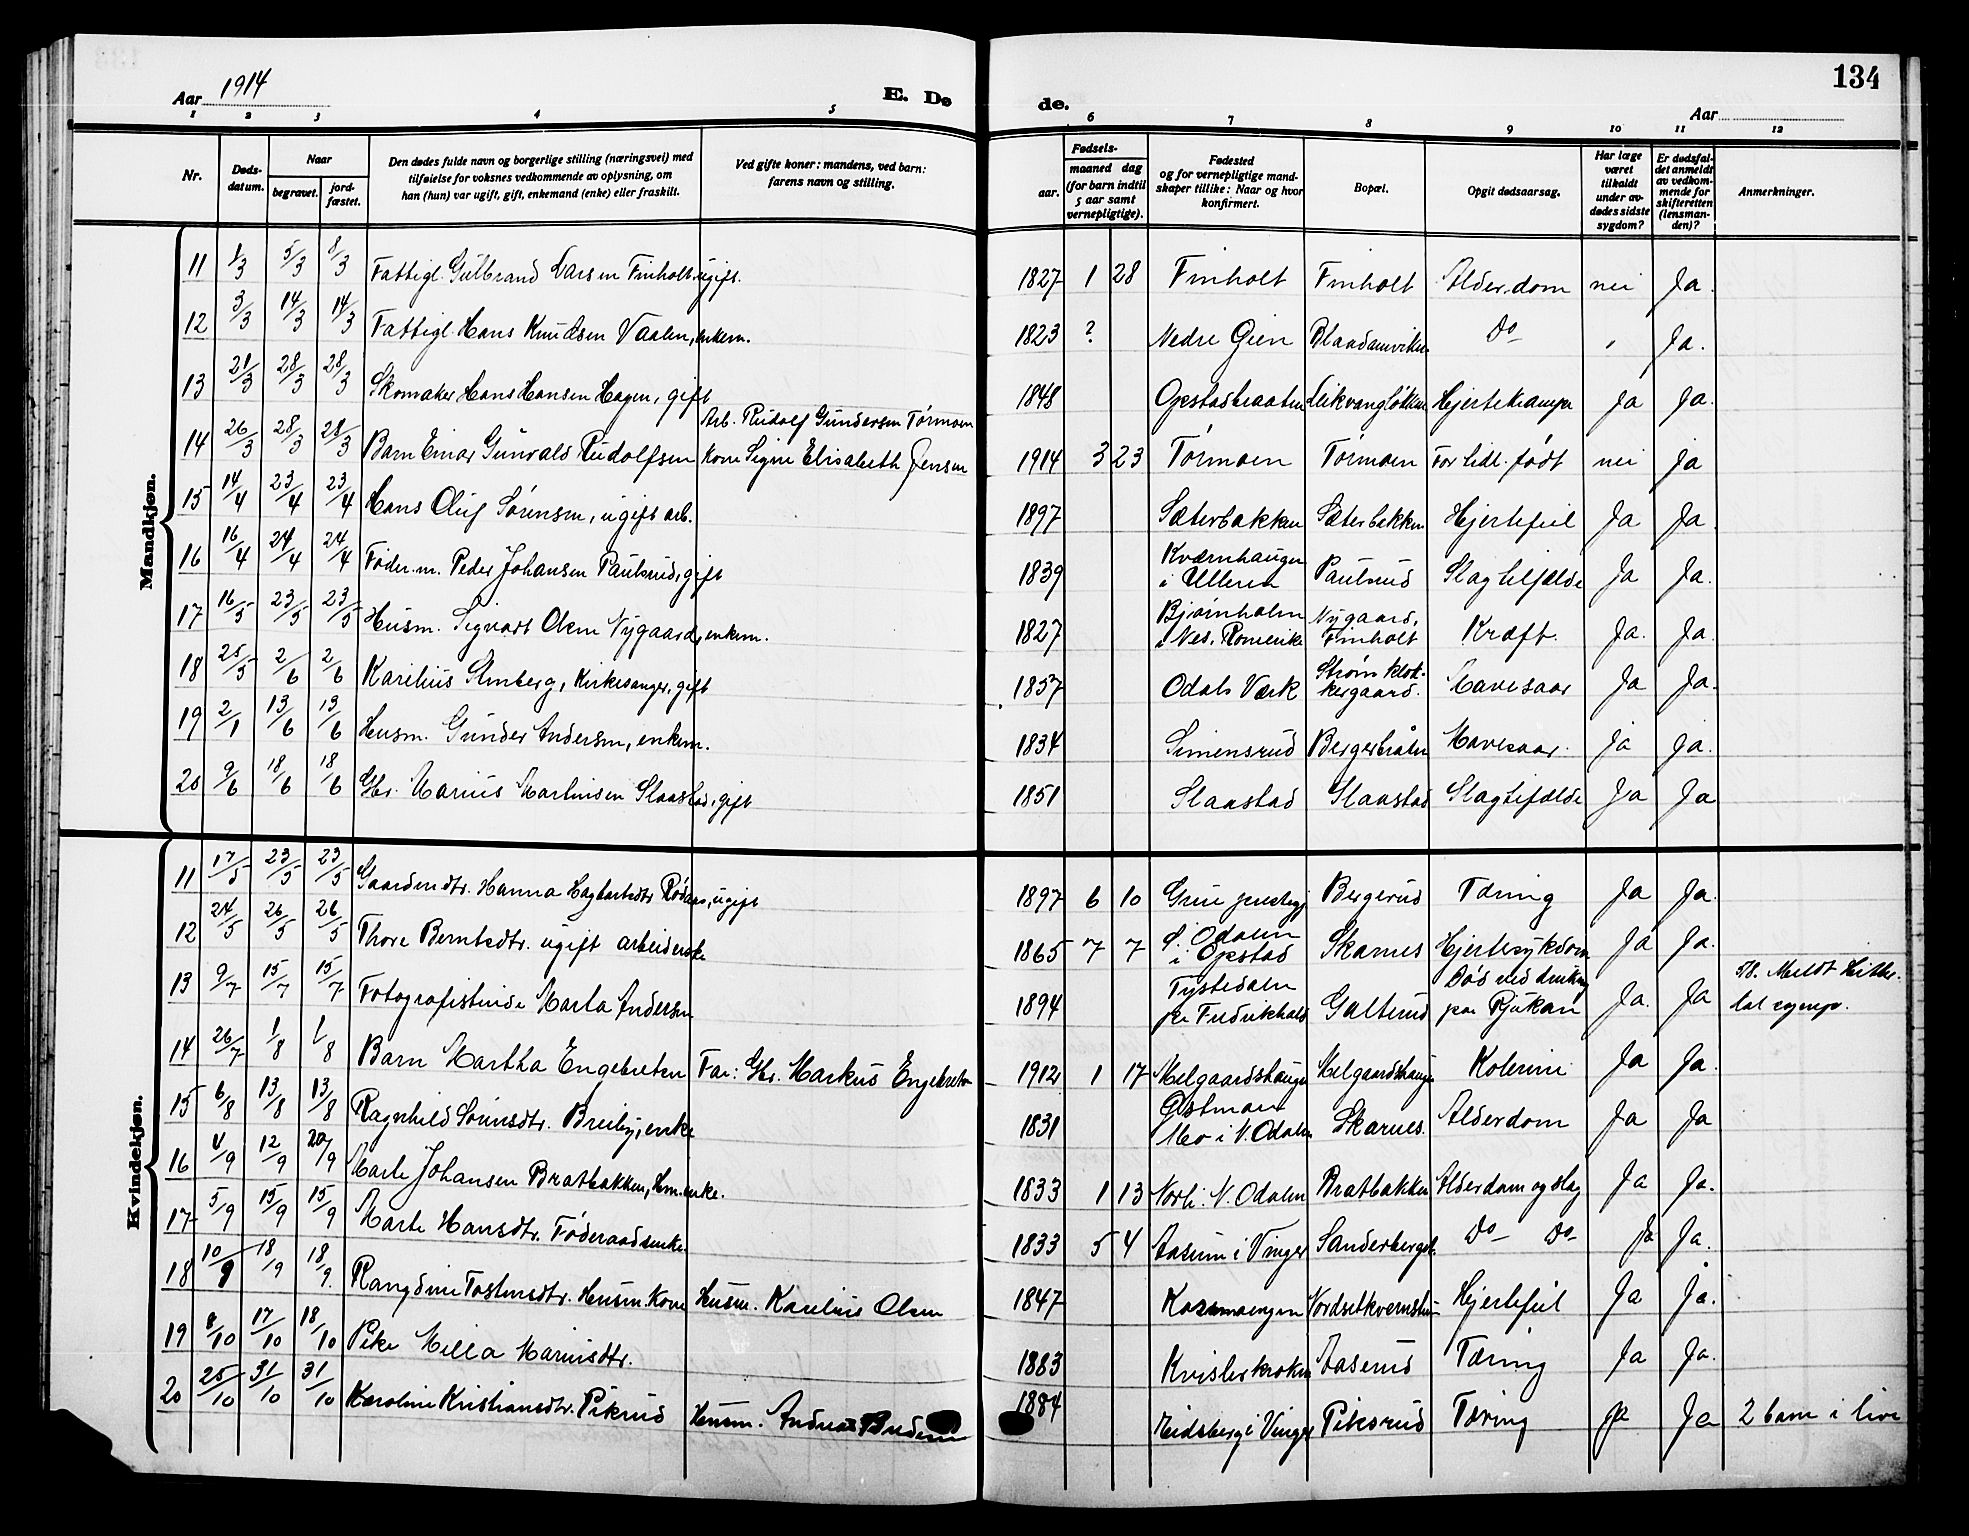 Aar 1914
E. Dø
de.
Aar
134
1 2 3 4 5 6 7 8 9 10 11 12
Nr.
Døds-
datum.
Naar
begravet.
jord-
fæstet.
Den dødes fulde navn og borgerlige stilling (næringsvei) med
tilføielse for voksnes vedkommende av oplysning, om
han (hun) var ugift, gift, enkemand (enke) eller fraskilt.
Ved gifte koner: mandens, ved barn:
farens navn og stilling.
Fødsels-
aar.
maaned dag
(for barn indtil
5 aar samt
vernepligtige).
Fødested
og for vernepligtige mand-
skaper tillike: Naar og hvor
konfirmert.
Bopæl.
Opgit dødsaarsag.
Har læge
været
tilkaldt
under av-
dødes sidste
sygdom?
Er dødsfal-
det anmeldt
av vedkom-
mende for
skifteretten
(lensman-
den)?
Anmerkninger.
Mandkjøn.
11 1/3 5/3 8/3 Fattigl. Gulbrand Larsen Finholt ugift. 1827 1 28 Finholt Finholt Alderdom nei Ja.
12 3/3 14/3 14/3 Fattigl. Hans Knudsen Vaalen, enkem. 1823 ? Nedre Gien Do Ja.
13 21/3 28/3 28/3 Skomaker Hans Hansen Hagen, gift 1848 Opstadbraaten Hjertekrampe Ja Ja.
Arb. Rudolf Gundersen Tørmoen
14 26/3 28/3 28/3 Barn Einar Gunvald Rudolfsen kone Signe Elisabeth Jensen 1914 3 23 Tørmoen Tørmoen For tidl. født nei ja
15 14/4 23/4 23/4 Hans Oluf Sørensen, ugift arb. 1897 Sæterbakken Sæterbakken Hjertefeil Ja Ja.
16 16/4 24/4 24/4 Føder.m. Peder Johansen Paulsrud, gift 1839 Kværnhaugen
i Ulleren Paulsrud Slagtilfælde Ja Ja.
17 16/5 23/5 23/5 Husm. Sigvart Olsen Nygaard, enkem. 1827 Bjørnholen
i Nes. Romerike Nygaard,
Finholt Kræft. Ja. Ja.
18 25/5 2/6 2/6 Karelius Strøm­berg, Kirkesanger, gift 1857 Odals Værk Strøm klok-
kergaard. Mavesaar Ja Ja.
19 2/1 13/6 13/6 Husm. Gunder Andersen, enkem. 1834 Simensrud Bergerbråten Mavesaar. Ja ja.
20 9/6 18/6 18/6 Gbr. Marius Martinsen Slaastad, gift 1851 Slaastad Slaastad Slagtifælde Ja Ja
Kvindekjøn.
11 17/5 23/5 23/5 Gaardm.dtr. Hanna Hagbartsdtr ugift 1897 6 10 Grue prestegj Bergerud Tæring Ja Ja.
12 24/5 26/5 26/5 Thore Berntsdtr. ugift arbeiderske 1865 7 7 S. Odalen
i Opstad Skarnes Hjertesykdom Ja Ja.
13 9/7 15/7 15/7 Fotografistinde Marta Andersen 1894 Tystedalen
pr Fredrikhald Galterud Død ved drukning
paa Rjukan Ja. Ja 58. Meldt Hitter-
dal sognep.
14 26/7 1/8 1/8 Barn Martha Engebretsen Far: Gbr. Markus Engebretsen 1912 1 17 Melgaardshaugen Melgaardshaugen Kolerine Ja Ja.
15 6/8 13/8 13/8 Ragnhild Simensdtr. Breiby, enke 1831 Østmoen
Mo i N. Odalen Skarnes. Alderdom Ja Ja
16 4/9 12/9 20/9 Marte Johansen Bratbakken, Hm.enke. 1833 1 13 Norli. N. Odalen Bratbakken Alderdom og slag Ja Ja.
17 5/9 15/9 15/9 Marte Hansdtr. Føderaadsenke. 1833 5 4 Aaserum i Vinger Sanderberget. Do Do Ja Ja.
18 10/9 18/9 18/9. Rangdine Tostensdtr. Husm.kone Husm. Karelius Olsen 1847 Kosmoengen Hjertefeil Ja Ja.
19 8/10 17/10 18/10 Pike Milla Mariusdtr. 1883 Kvislerkroken Aaserud Tæring Ja Ja.
20 25/10 31/10 31/10 Karoline Kristiansdtr. Pikrud Husm. Andreas 1884 Eidsberg i Vinger Pikrud Tæring Ja Ja 2 barn i live